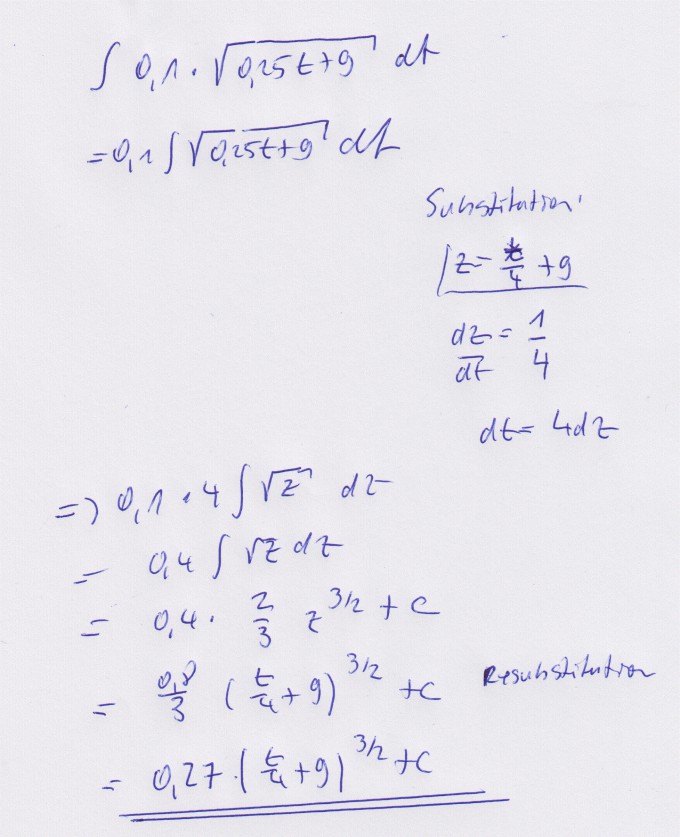 ∫ 0,1 · √(0,25t+9) dt
= 0,1 ∫ √(0,25t+9) dt
Substitution:
z = t/4 + 9
dz/dt = 1/4
dt = 4dz
=> 0,1 · 4 ∫ √z dz
= 0,4 ∫ √z dz
= 0,4 · 2/3 z^3/2 + c
= 0,8/3 (t/4 + 9)^3/2 + c Resubstitution
= 0,27 · (t/4 + 9)^3/2 + c